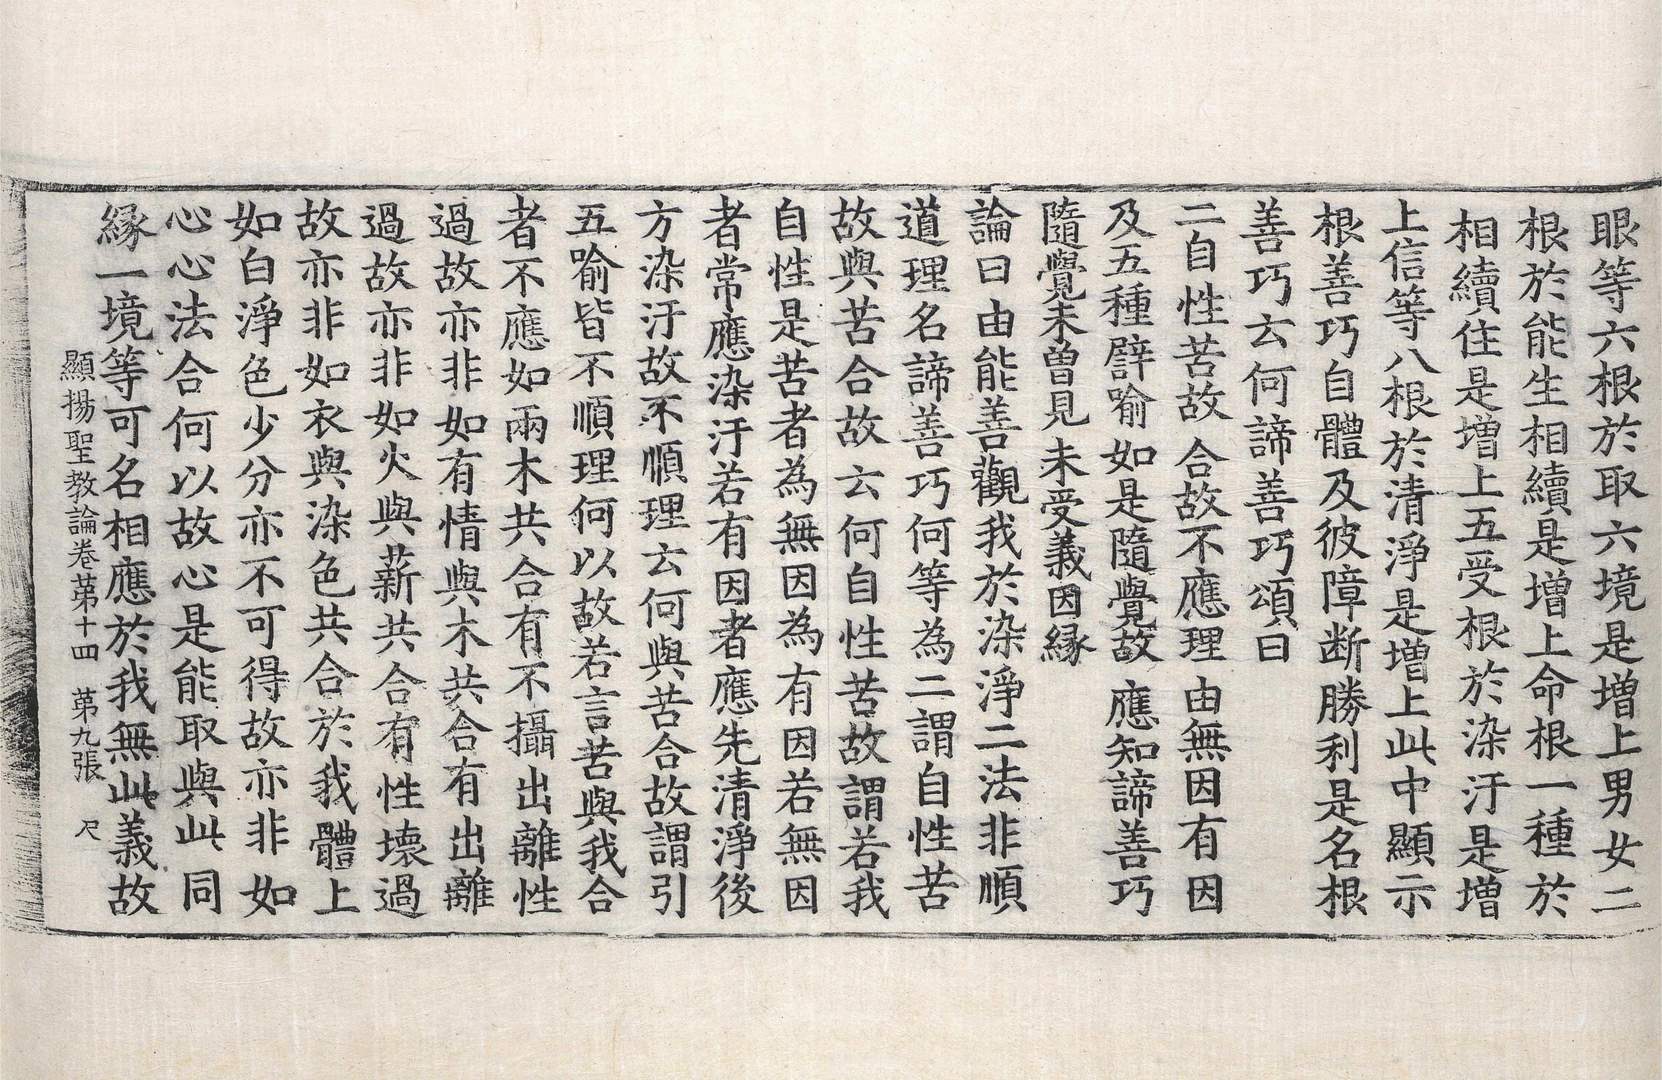 眼等六根於取六境是増上男女二
根於能生相續是増上命根一種於
相續住是増上五受根於染汙是増
上信等八根於清淨是増上此中顯示
根善巧自體及彼障断勝利是名根
善巧云何諦善巧頌曰
二自性苦故 合故不應理 由無因有因
及五種譬喻 如是隨覺故 應知諦善巧
隨覺未曽見 未受義因縁
論曰由能善觀我於染淨二法非順
道理名諦善巧何等為二謂自性苦
故與苦合故云何自性苦故謂若我
自性是苦者為無因為有因若無因
者常應染汙若有因者應先清淨後
方染汙故不順理云何與苦合故謂引
五喻皆不順理何以故若言苦與我合
者不應如兩木共合有不攝出離性
過故亦非如有情與木共合有出離
過故亦非如火與薪共合有性壞過
故亦非如衣與染色共合於我體上
如白淨色少分亦不可得故亦非如
心心法合何以故心是能取與此同
縁一境等可名相應於我無此義故
顯揚聖教論卷苐十四 苐九張 尺